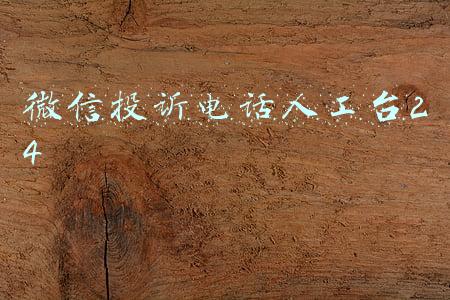 微信投诉电话人工台2
4